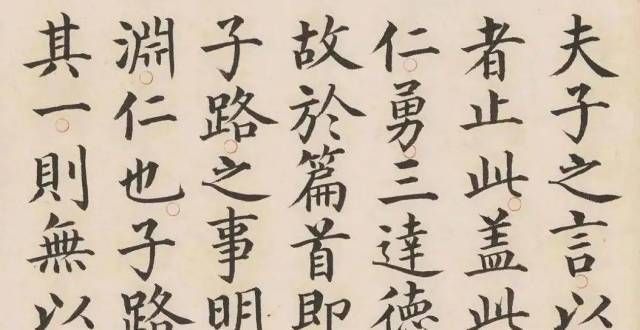 夫子之言以
者止此盖此
仁勇三達德
故於篇首即
子路之事明
淵仁也子路
其一則無以